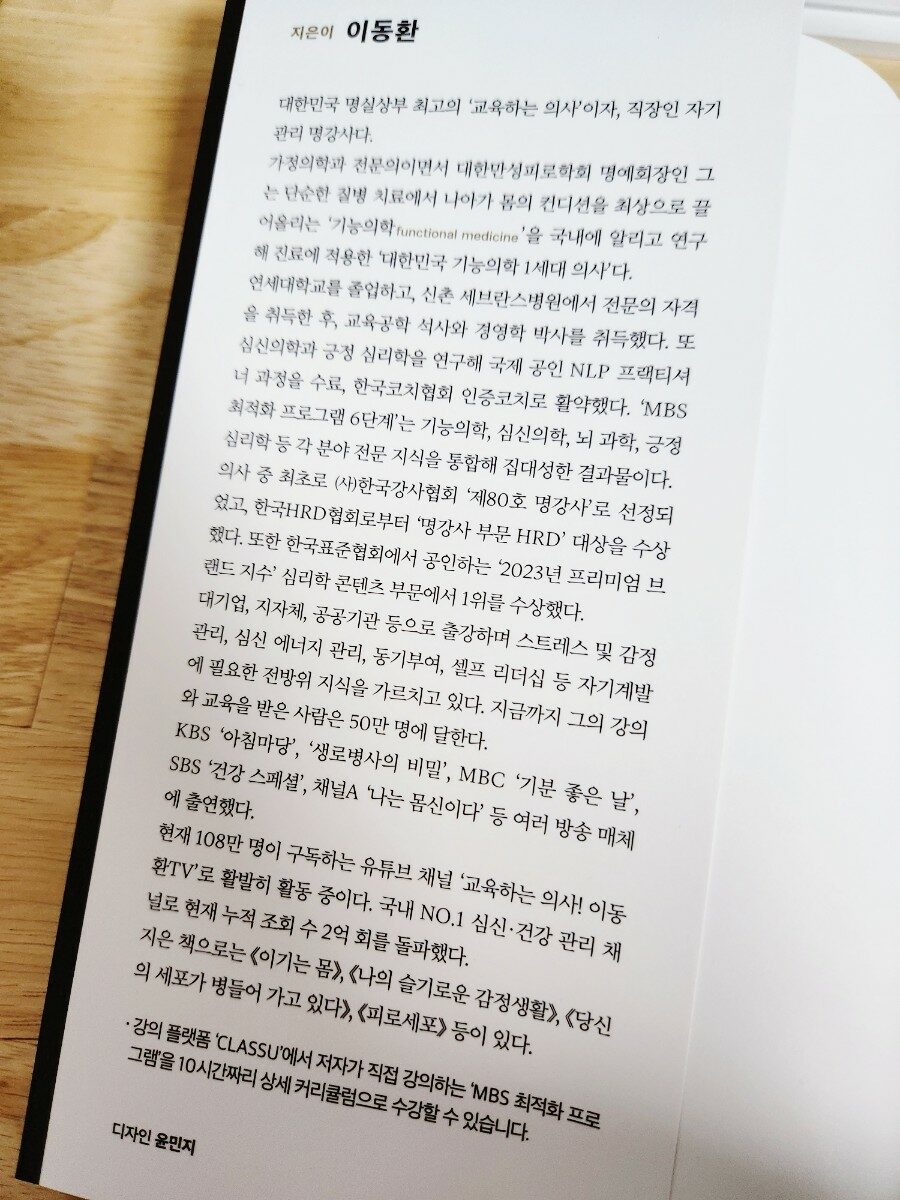 지은이 이동환
대한민국 명실상부 최고의 ‘교육하는 의사’이자, 직장인 자기
관리 명강사다.
가정의학과 전문의이면서 대한만성피로학회 명예회장인 그
는 단순한 질병 치료에서 나아가 몸의 컨디션을 최상으로 끌
어올리는 ‘기능의학functional medicine’을 국내에 알리고 연구
해 진료에 적용한 ‘대한민국 기능의학 1세대 의사’다.
연세대학교를 졸업하고, 신촌 세브란스병원에서 전문의 자격
을 취득한 후, 교육공학 석사와 경영학 박사를 취득했다. 또
심신의학과 긍정 심리학을 연구해 국제 공인 NLP 프랙티셔
너 과정을 수료, 한국코치협회 인증코치로 활약했다. ‘MBS
최적화 프로그램 6단계’는 기능의학, 심신의학, 뇌 과학, 긍정
심리학 등 각 분야 전문 지식을 통합해 집대성한 결과물이다.
의사 중 최초로 (사)한국강사협회 ‘제80호 명강사’로 선정되
었고, 한국HRD협회로부터 ‘명강사 부문 HRD’ 대상을 수상
했다. 또한 한국표준협회에서 공인하는 ‘2023년 프리미엄 브
랜드 지수’ 심리학 콘텐츠 부문에서 1위를 수상했다.
대기업, 지자체, 공공기관 등으로 출강하며 스트레스 및 감정
관리, 심신 에너지 관리, 동기부여, 셀프 리더십 등 자기계발
에 필요한 전방위 지식을 가르치고 있다. 지금까지 그의 강의
와 교육을 받은 사람은 50만 명에 달한다.
KBS ‘아침마당’, ‘생로병사의 비밀’, MBC ‘기분 좋은 날’,
SBS ‘건강 스페셜’, 채널A ‘나는 몸신이다’ 등 여러 방송 매체
에 출연했다.
현재 108만 명이 구독하는 유튜브 채널 ‘교육하는 의사! 이동
환TV’로 활발히 활동 중이다. 국내 NO.1 심신·건강 관리 채
널로 현재 누적 조회 수 2억 회를 돌파했다.
지은 책으로는 《이기는 몸》, 《나의 슬기로운 감정생활》, 《당신
의 세포가 병들어 가고 있다》, 《피로세포》 등이 있다.
· 강의 플랫폼 ‘CLASSU’에서 저자가 직접 강의하는 ‘MBS 최적화 프로
그램’을 10시간짜리 상세 커리큘럼으로 수강할 수 있습니다.
디자인 윤민지